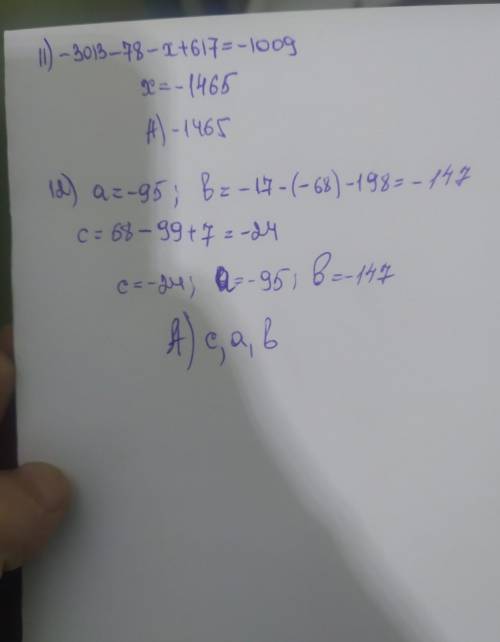 11) -3013-78-x+617=-1009
x=-1465
A) -1465
12) a=-95; b= -17-(-68)-198=-147
c= 68-99+7=-24
c=-24; a=-95; b=-147
A) c, a, b